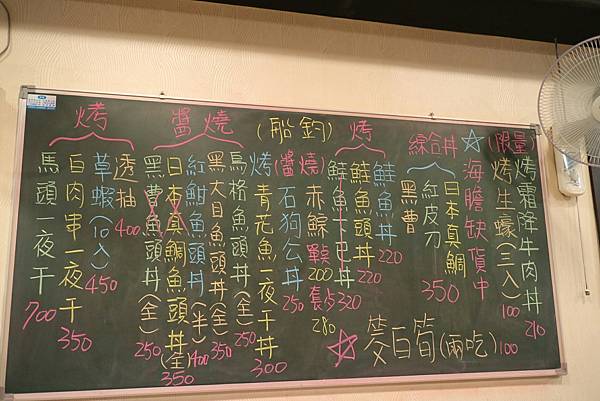 (限量)
烤霜降牛肉丼 210
烤生蠔(三入) 100
☆海膽缺貨中
綜合丼
日本真鯛
紅皮刀
黑曹
350
烤
鮭魚丼 220
鮭魚頭丼 220
鮭魚下巴丼 320
(船釣)
(醬燒)赤鯮 單點200 套280
石狗公丼 250
烤青花魚一夜干丼 300
醬燒
烏格魚頭丼(全) 250
黑大目魚頭丼(全) 350
紅魽魚頭丼(半) 400
日本真鯛魚頭丼(全) 350
黑曹魚頭丼(全) 250
烤
透抽 400
草蝦(10入) 450
白肉串一夜干 350
馬頭一夜干 700
☆茭白筍(兩吃) 100